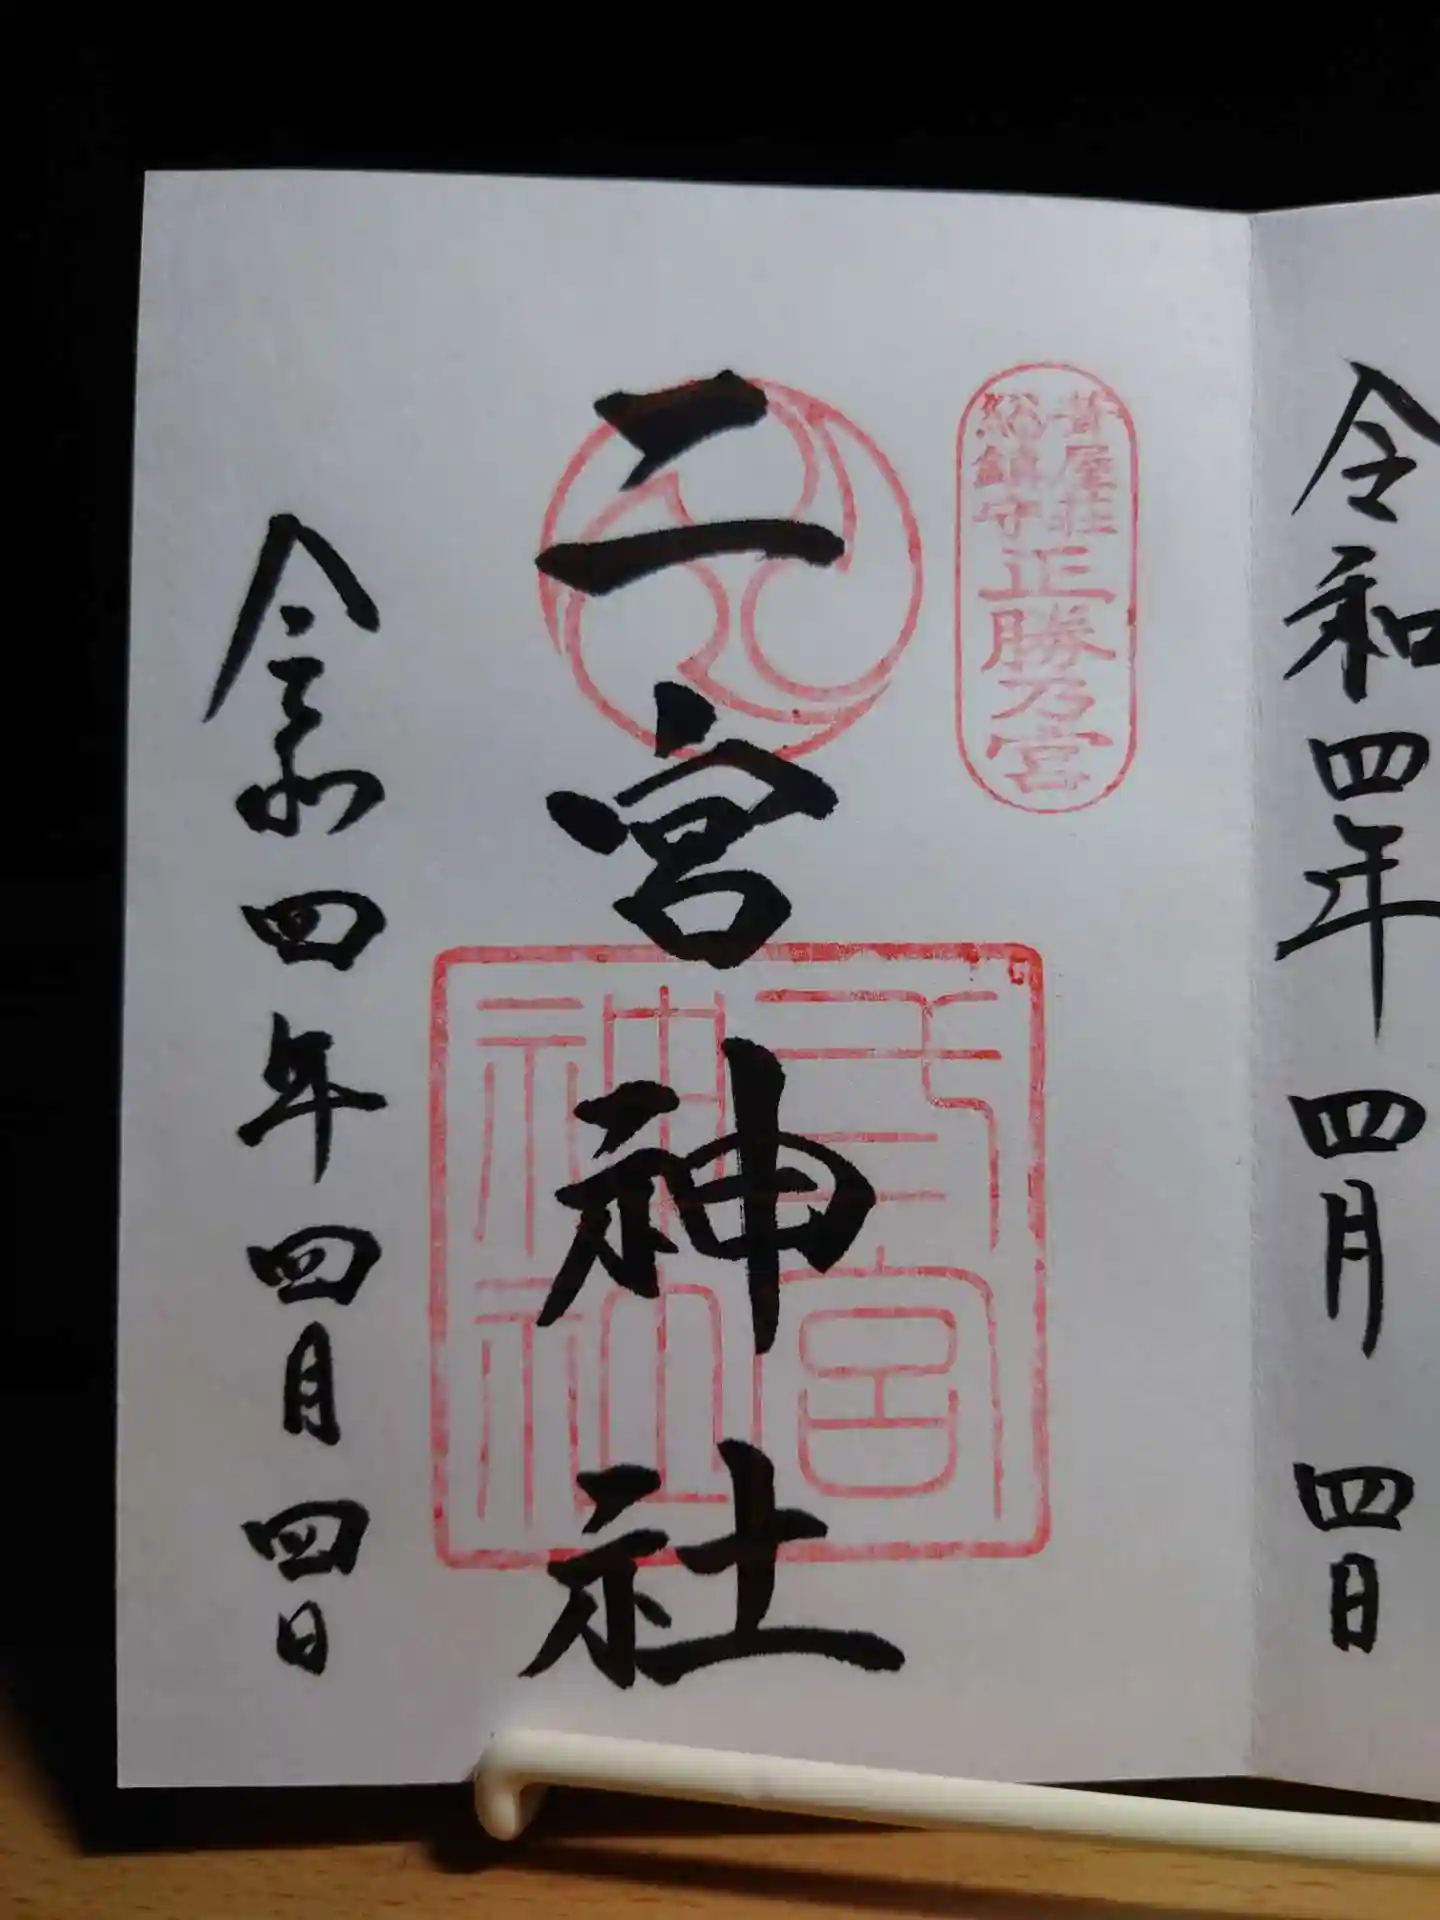 令和四年四月四日
葺屋荘
総鎮守
正勝乃宮
二宮神社
弍宮
神社
令和四年四月四日